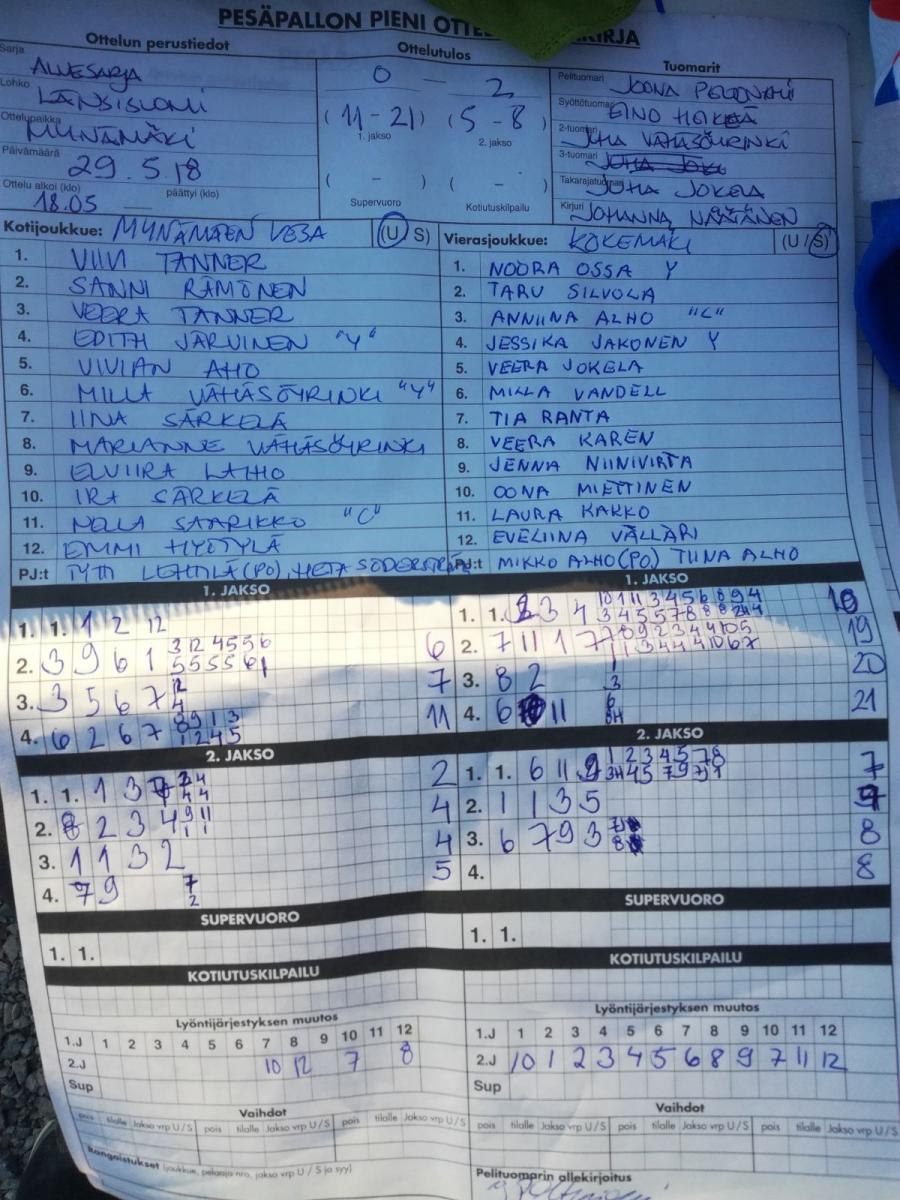 PESÄPALLON PIENI OTTE KIRJA
Ottelun perustiedot
Ottelutulos
Tuomarit
Sarja ALUESARJA
Lohko LÄNSISUOMI
Ottelupaikka MYNÄMÄKI
Päivämäärä 29.5.18
Ottelu alkoi (klo) päättyi (klo)
18.05
0 — 2
(11-21) (5-8)
1. jakso 2. jakso
( - ) ( - )
Supervuoro Kotiutuskilpailu
Pelituomari JOONA
Syöttötuomari EINO
2-tuomari JUHA VÄHÄSÖYRINKI
3-tuomari
Takarajatuomari JUHA JOKELA
Kirjuri JOHANNA NÄÄTÄNEN
Kotijoukkue: MYNÄMÄEN VESA (U/S)
1. VIIVI TANNER
2. SANNI RÄMÖNEN
3. VEERA TANNER
4. EDITH JÄRVINEN "Y"
5. VIVIAN AHO
6. MILLA VÄHÄSÖYRINKI "Y"
7. IINA SÄRKELÄ
8. MARIANNE VÄHÄSÖYRINKI
9. ELVIIRA LAIHO
10. IRA SÄRKELÄ
11. NELLA SAARIKKO "C"
12. EMMI HYÖTYLÄ
PJ:t LEHTILÄ (PO), HETA
Vierasjoukkue: KOKEMÄKI (U/S)
1. NOORA OSSA Y
2. TARU SILVOLA
3. ANNIINA ALHO "C"
4. JESSIKA JAKONEN Y
5. VEERA JOKELA
6. MILLA VANDELL
7. TIA RANTA
8. VEERA KAREN
9. JENNA NIINIVIRTA
10. OONA MIETTINEN
11. LAURA KARKO
12. EVELIINA VÄLLÄRI
PJ:t MIKKO ALHO (PO) TIINA ALHO
1. JAKSO
1. 1. 1 2 12
2. 3 9 6 1 3 12 4 5 5 6 6
5 5 5 5 6 1
3. 3 5 6 7 12 7
4
4. 6 2 6 7 8 9 1 3 11
1 2 4 5
2. JAKSO
1. 1. 1 3 2 4 2
4 4
2. 8 2 3 4 9 11 4
1 1
3. 1 1 3 2 4
4. 7 9 7 5
2
SUPERVUORO
1. 1.
KOTIUTUSKILPAILU
Lyöntijärjestyksen muutos
1.J 1 2 3 4 5 6 7 8 9 10 11 12
2.J 10 12 7 8
Sup
Vaihdot
pois tilalle Jakso vrp U/S pois tilalle Jakso vrp U/S pois tilalle Jakso vrp U/S
Rangaistukset (joukkue, pelaaja nro, jakso vrp U / S ja syy)
1. JAKSO
1. 1. 3 4 10 11 11 3 4 5 6 8 9 4
2. 7 11 1 7 19
3. 8 2 1 20
3
4. 6 11 6 21
2. JAKSO
1. 1. 6 11 1 2 3 4 5 7 8 7
2. 1 1 3 5
3. 6 7 9 3 8
4. 8
SUPERVUORO
1. 1.
KOTIUTUSKILPAILU
Lyöntijärjestyksen muutos
1.J 1 2 3 4 5 6 7 8 9 10 11 12
2.J 10 1 2 3 4 5 6 8 9 7 11 12
Sup
Vaihdot
pois tilalle Jakso vrp U/S pois tilalle Jakso vrp U/S pois tilalle Jakso vrp U/S
Pelituomarin allekirjoitus